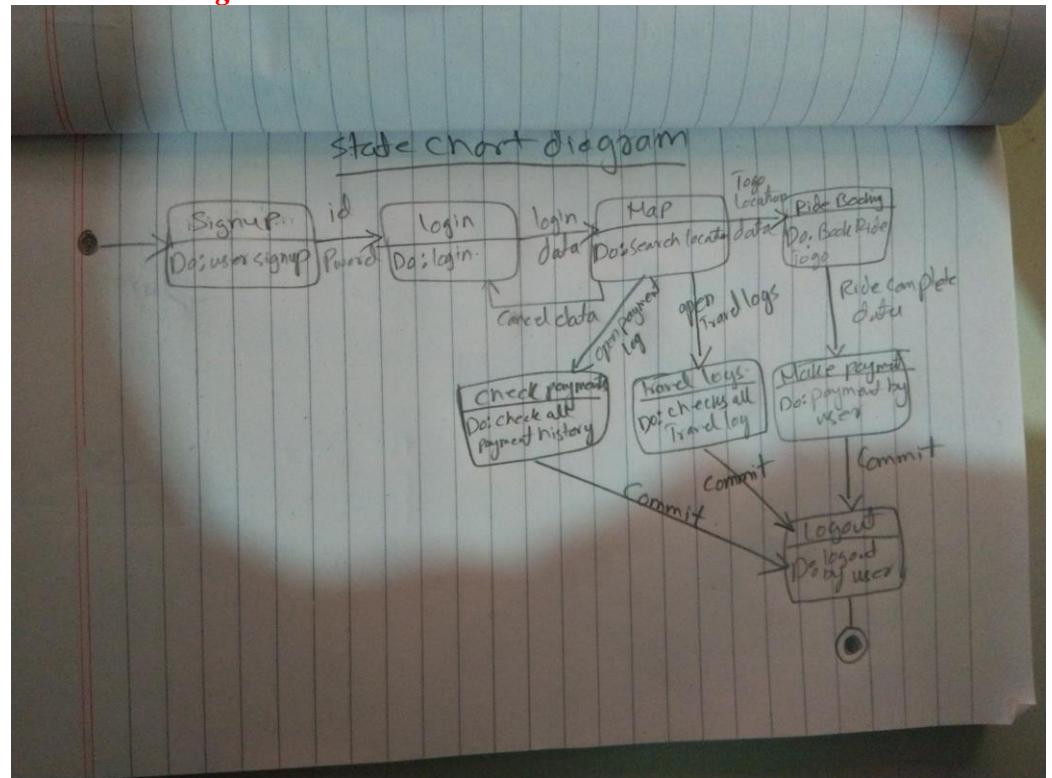 State chart diagram
Signup...
Do: user signup
id
login
Do: login.
login
data
Map
Do: search locatio
Togo
Location
data
Ride Booking
Do: Book Ride
Togo
Cancel data
open payment
log
open
Travel logs
Ride complete
data
Check payments
Do: check all
payment history
Travel logs.
Do: checks all
Travel log
Make payment
Do: payment by
user
Commit
Commit
Commit
Logout
Do: logout
by user